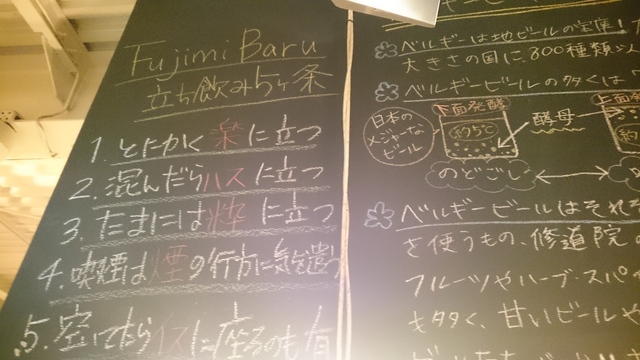 Fujimi Baru
立ち飲み5ヶ条
1. とにかく 楽に立つ
2. 混んだらハスに立つ
3. たまには粋に立つ
4. 喫煙は煙の行方に気を遣う
5. 空いてたらイスに座るのも有
ベルギーは地ビールの宝庫!
大きさの国に、800種類以
ベルギービールの多くは
下面発酵
上面
日本の
メジャーな
ビール
約5℃
酵母
約
のどごし
ベルギービールはそれぞ
を使うもの、修道院の
フルーツやハーブ・スパ
も多く、甘いビールや